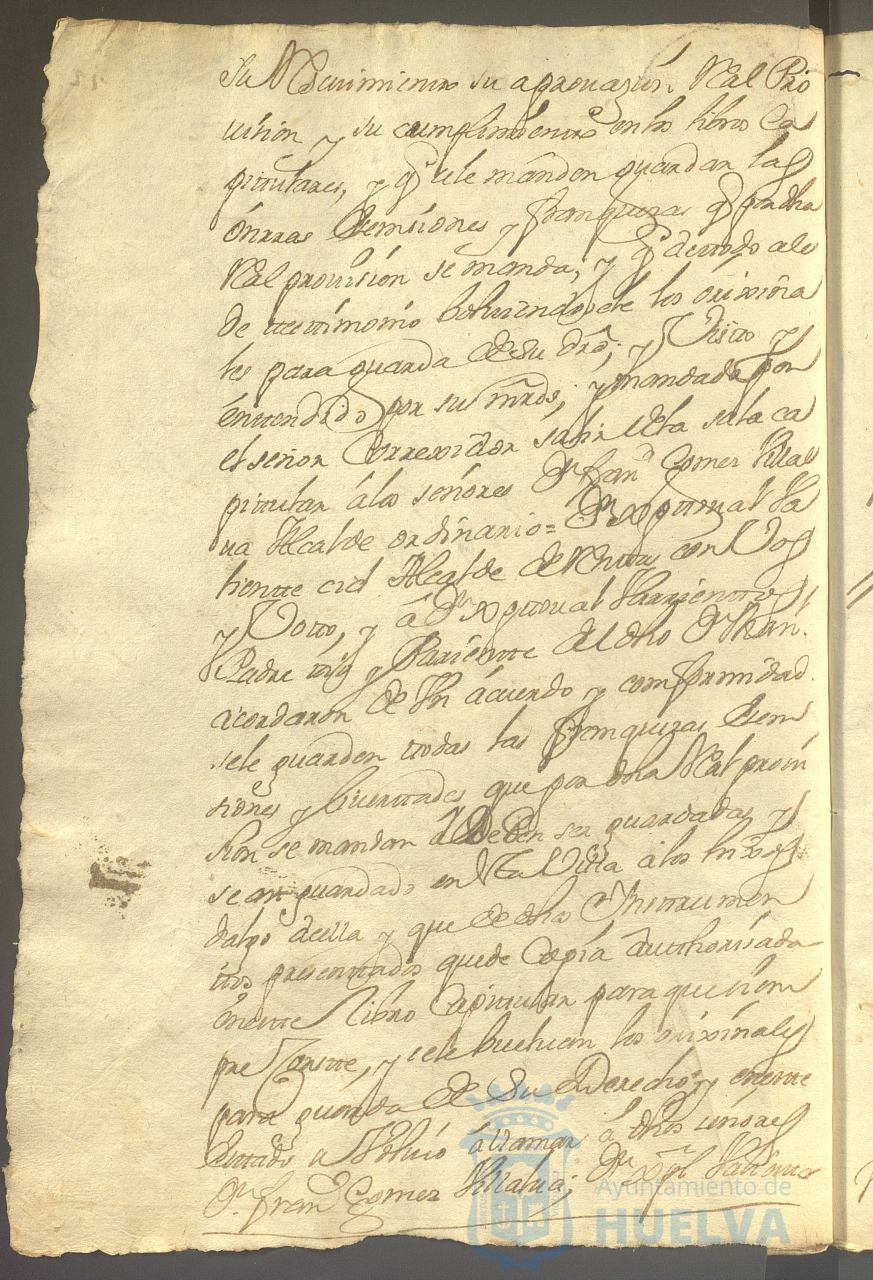 su Reciuimiento su aprouazion Real Pro
uision y su cumplimiento en los libros Ca
pitulares, y qe se le manden guardar las
onrras esempsiones y franquezas qe por dha
Real prouision se manda, y qe de todo se le
de testimonio boluiendosele los orixina
les para guarda de su dro; y Visto y
entendido por sus mrds; y mandado por
el señor Correxidor salir de la sala ca
pitular a los señores Dn Franco Gomez Villal
ua Alcalde ordinario = Dn Xptoual Va
liente cid Alcalde de Rentas con Voz
y Voto, y á Dn Xptoual Varientto
Padre tio y Pariente del dho Dn
acordaron de Un acuerdo y comformidad
se le guarden todas las franquezas esem
siones y liuertades que por dha Real proui
sion se mandan deben ser guardadas y
se an guardado en esta Villa a los hixos
dalgo de ella y que de dhos Instrumen
tos presentados quede copia authorisada
en este libro capitular para que siem
pre Conste, y se le bueluan los orixinales
para guarda de su Derecho; y en este
estado se boluio á llamar á dhos señores
Dn Franco Gomez Villalua; Dn Xptl Valiente
Ayuntamiento de
HUELVA